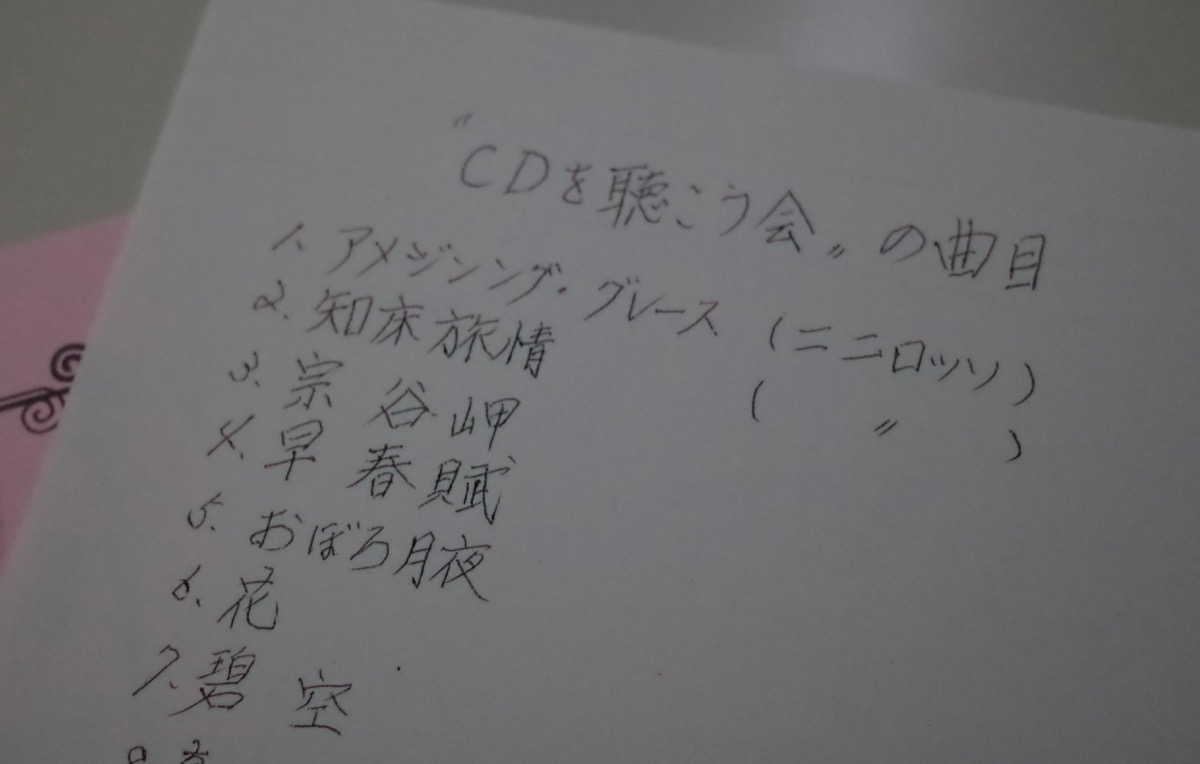 "CDを聴こう会〟の曲目
1. アメジシング・グレース (ニニロッソ)
2. 知床旅情 ( 〃 )
3. 宗谷岬
4. 早春賦
5. おぼろ月夜
6. 花
7. 碧空